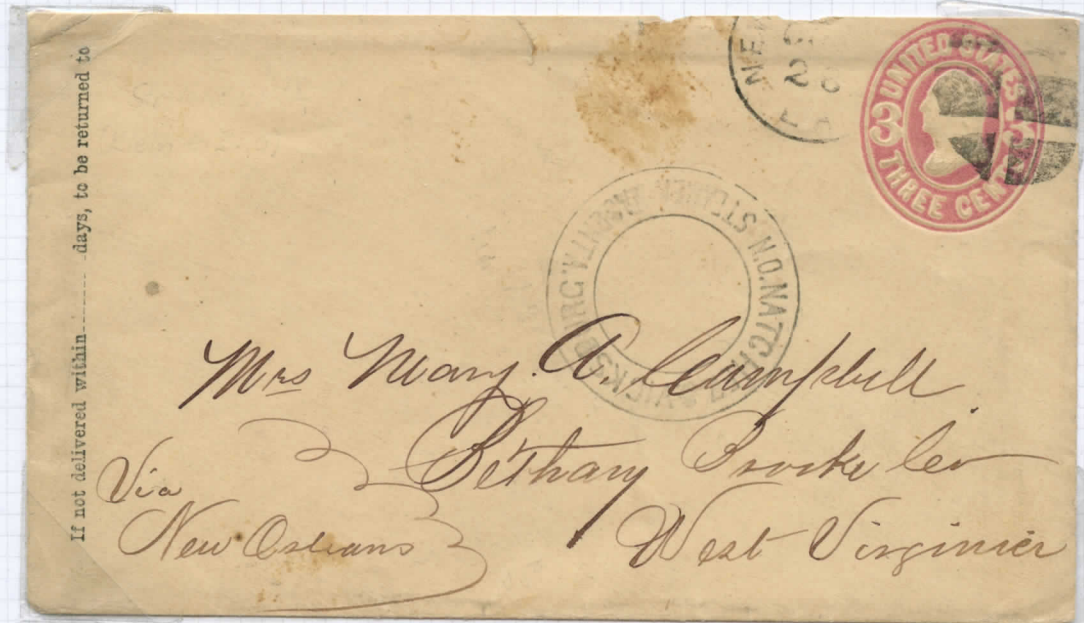 If not delivered within days, to be returned to
NEW
UNITED STATES
3 3
THREE CENTS
N.O. NATCHEZ & VICKSBURG.
Mrs Mary. A. Campbell.
Bethany Brooke Co
Via
New Orleans
West Virginier